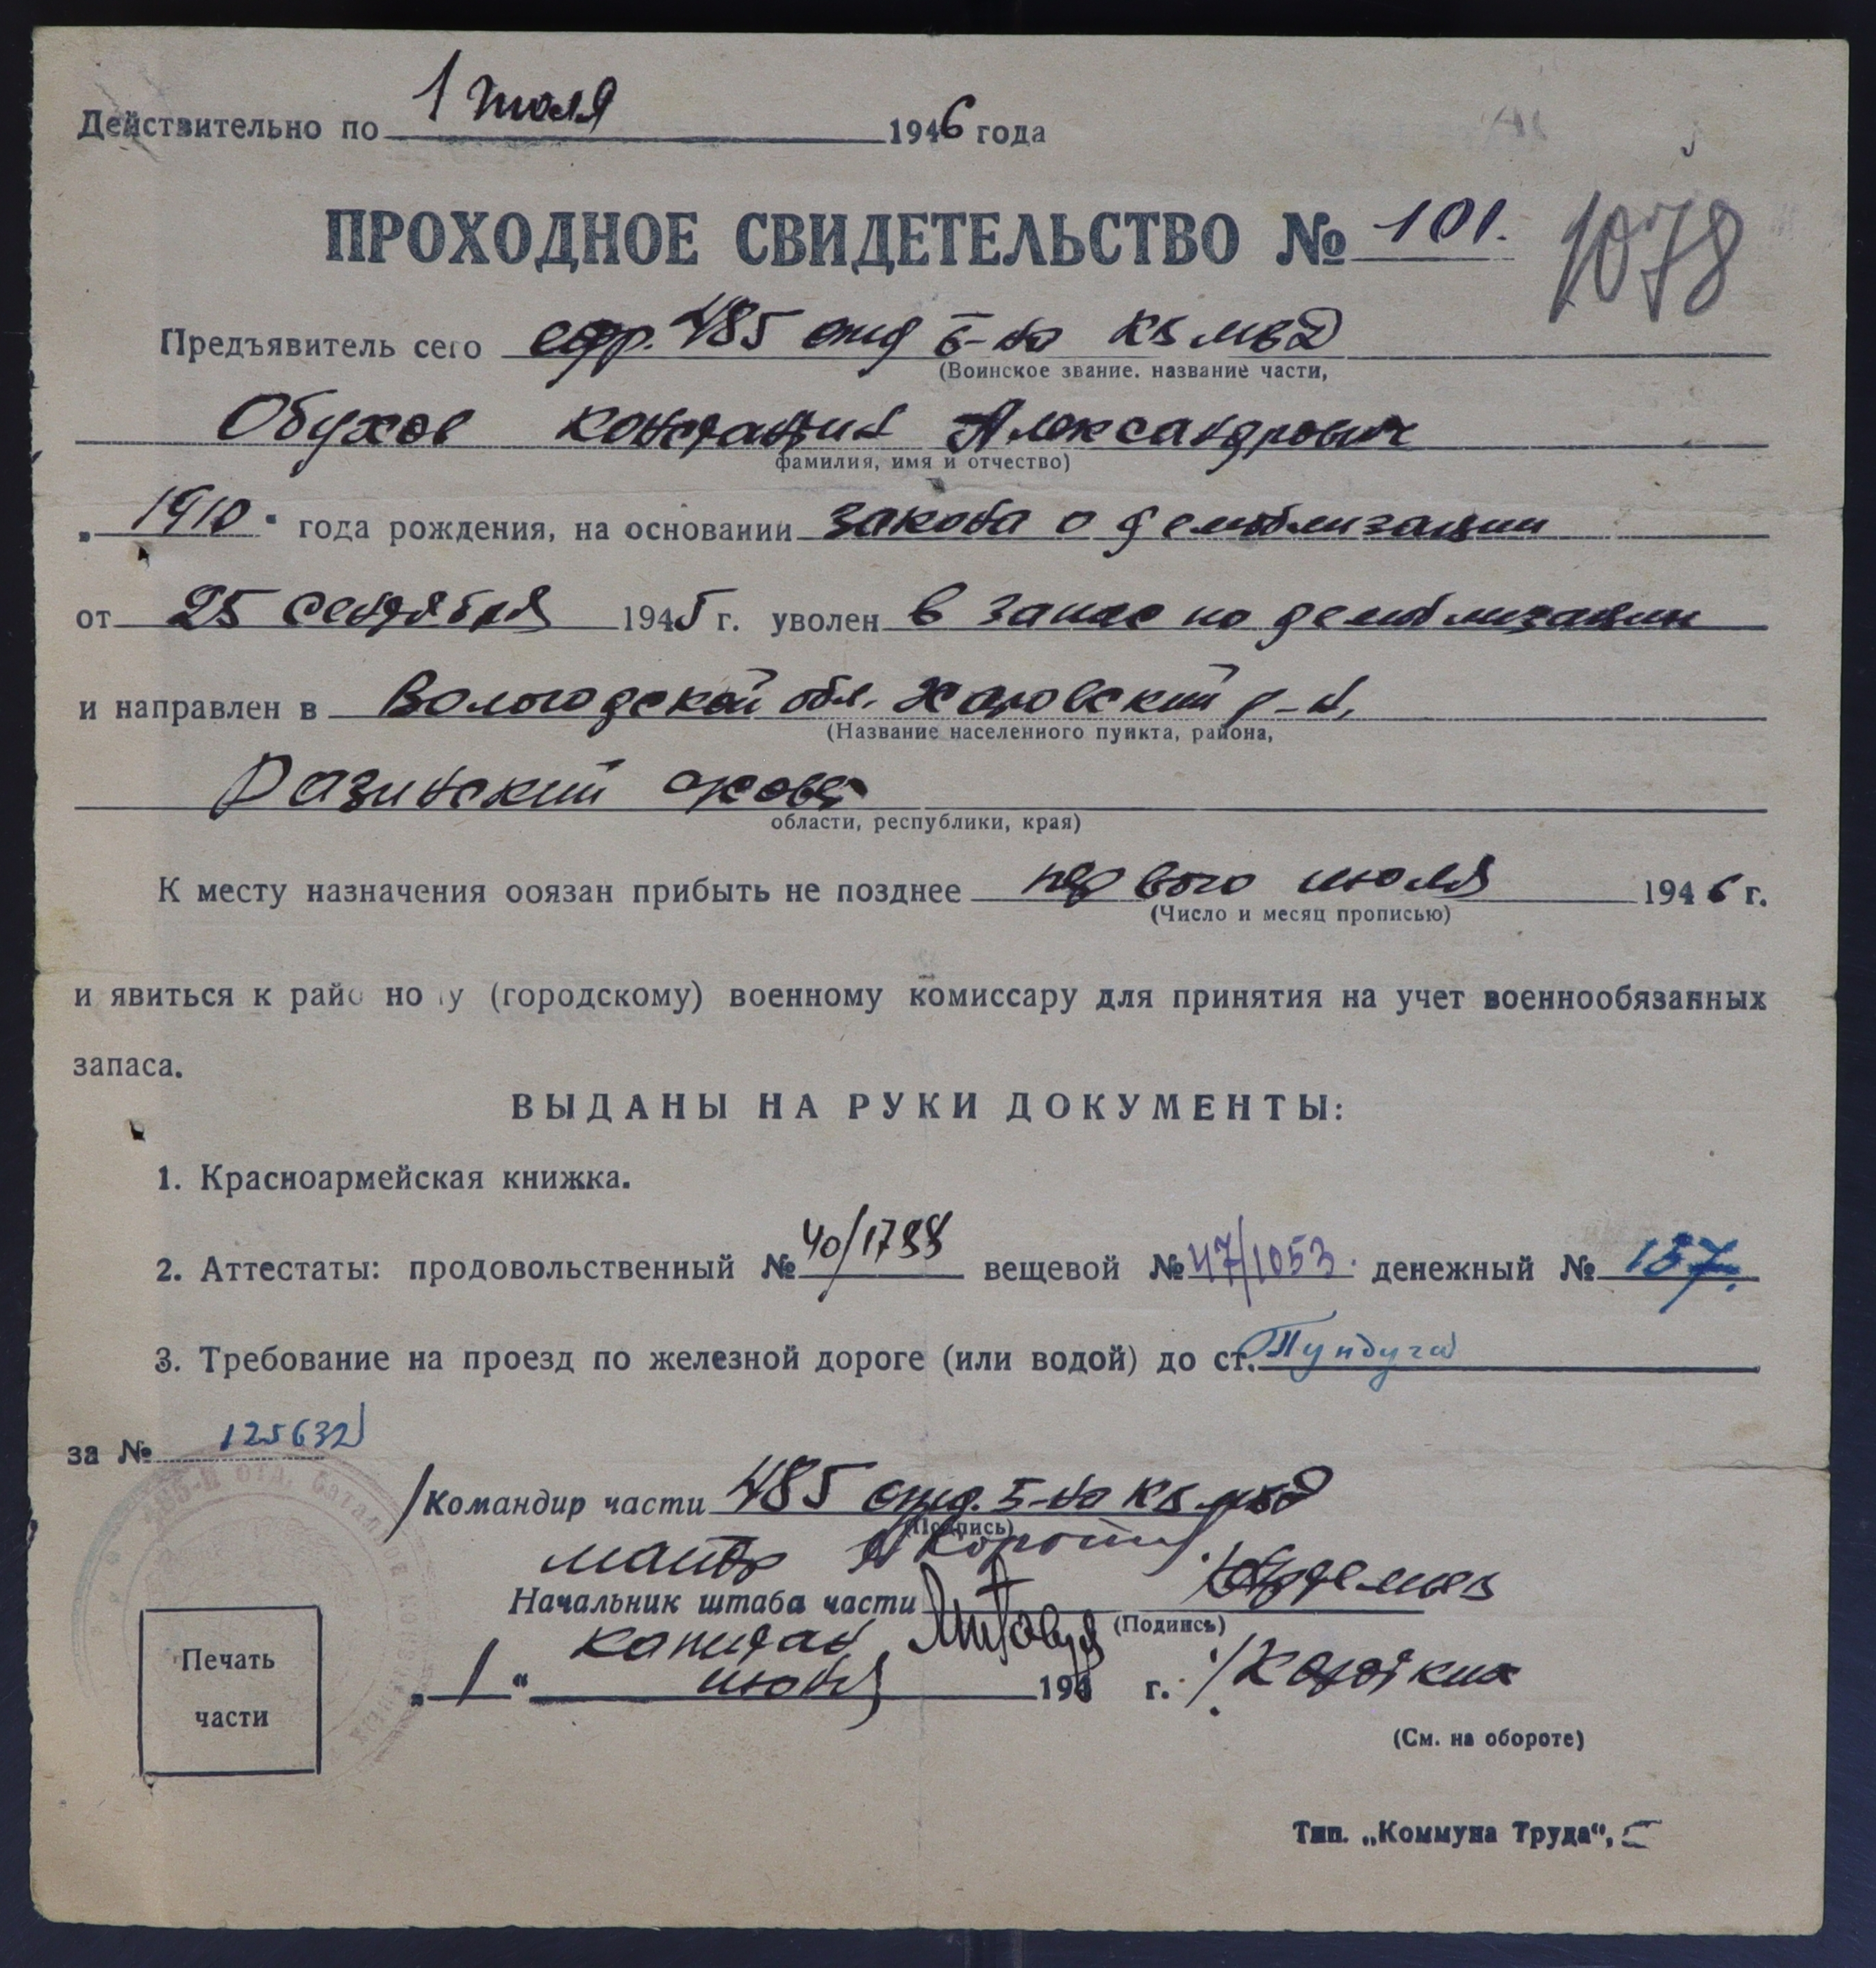 Действительно по 1 июля 1946 года
ПРОХОДНОЕ СВИДЕТЕЛЬСТВО № 101.
1078
Предъявитель сего ефр. 485 отд б-на КВ МВД
(Воинское звание. название части,
Обухов Константин Александрович
фамилия, имя и отчество)
„1910“ года рождения, на основании закона о демобилизации
от 25 сентября 1945 г. уволен в запас по демобилизации
и направлен в Вологодской обл. Харовский р-н,
(Название населенного пункта, района,
Разинский с/совет
области, республики, края)
К месту назначения ооязан прибыть не позднее первого июля 1946 г.
(Число и месяц прописью)
и явиться к райо но у (городскому) военному комиссару для принятия на учет военнообязанных
запаса.
ВЫДАНЫ НА РУКИ ДОКУМЕНТЫ:
1. Красноармейская книжка.
2. Аттестаты: продовольственный № 40/1788 вещевой № 47/1053. денежный № 157.
3. Требование на проезд по железной дороге (или водой) до ст. Пундуга
за № 125632
/Командир части 485 отд. б-на КВ МВД
(Подпись)
майор
Начальник штаба части
(Подпись)
капитан
„1“ июня 1946 г. /Коротких
(См. на обороте)
Печать
части
Тип. „Коммуна Труда“,